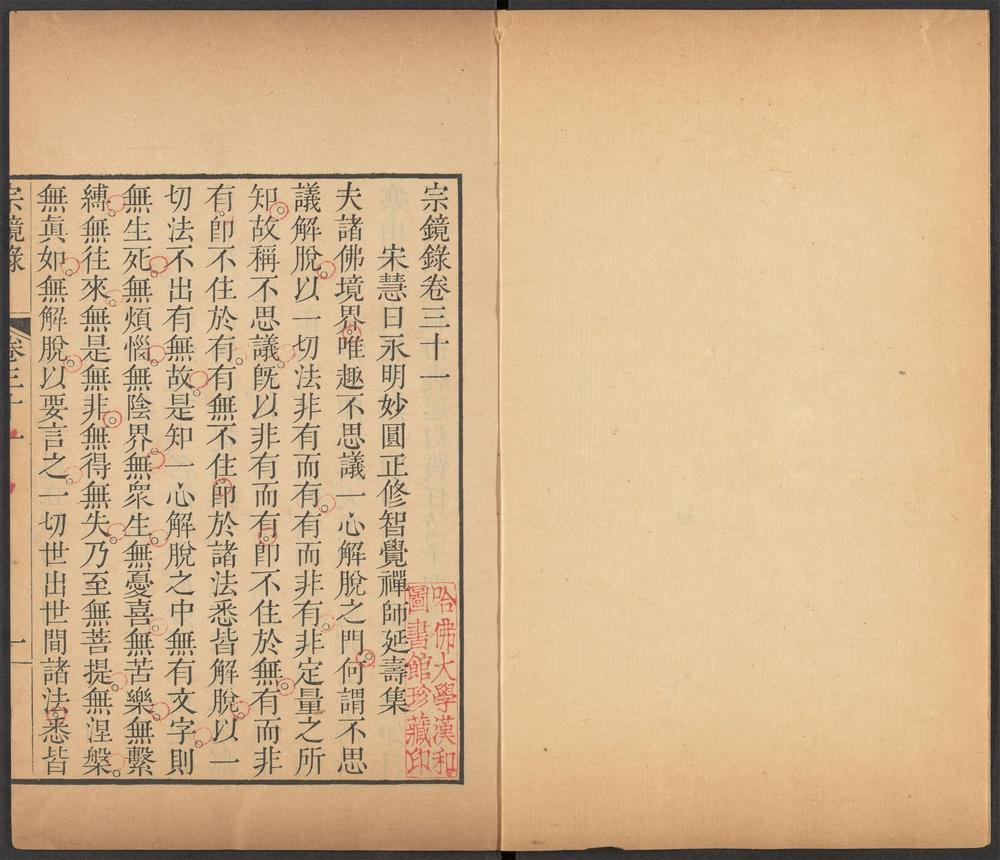 宗鏡錄卷三十一
宋慧日永明妙圓正修智覺禪師延壽集
夫諸佛境界唯趣不思議一心解脫之門何謂不思
議解脫以一切法非有而有有而非有非定量之所
知故稱不思議旣以非有而有卽不住於無有而非
有卽不住於有有無不住卽於諸法悉皆解脫以一
切法不出有無故是知一心解脫之中無有文字則
無生死無煩惱無陰界無衆生無憂喜無苦樂無繫
縛無往來無是無非無得無失乃至無菩提無涅槃
無眞如無解脫以要言之一切世出世間諸法悉皆
宗鏡錄
卷三十一
一
哈佛大學漢和
圖書館珍藏印